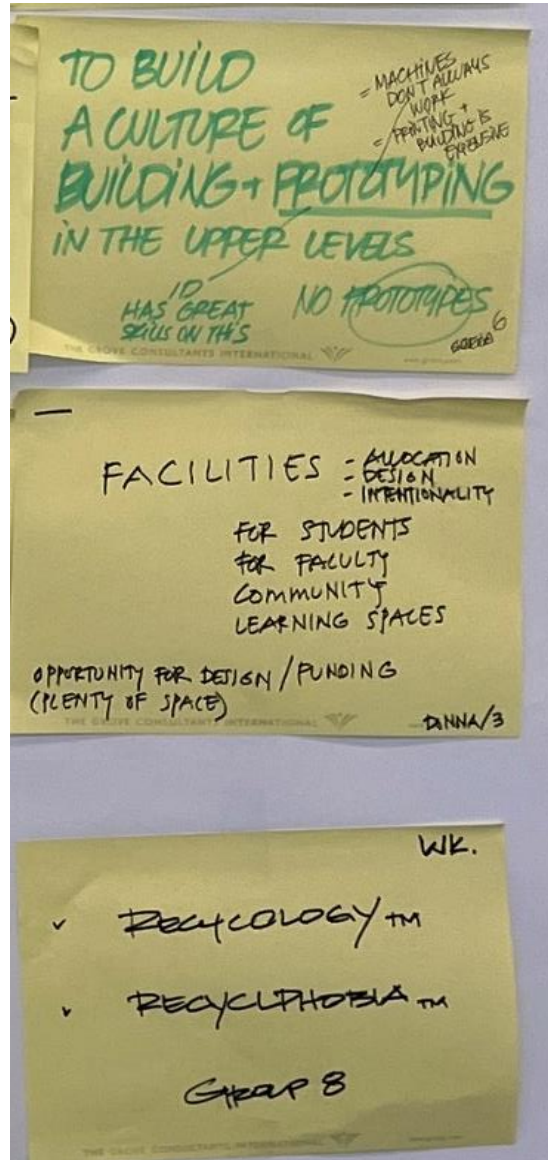 TO BUILD
A CULTURE OF
BUILDING + PROTOTYPING
IN THE UPPER LEVELS
= MACHINES
DON'T ALWAYS
WORK
= PRINTING +
BUILDING IS
EXPENSIVE
ID
HAS GREAT
SKILLS ON THIS
NO PROTOTYPES
6
THE GROVE CONSULTANTS INTERNATIONAL
—
FACILITIES
- ALLOCATION
- DESIGN
- INTENTIONALITY
FOR STUDENTS
FOR FACULTY
COMMUNITY
LEARNING SPACES
OPPORTUNITY FOR DESIGN / FUNDING
(PLENTY OF SPACE)
THE GROVE CONSULTANTS INTERNATIONAL
DONNA/3
WK.
✓ RECYCOLOGY TM
✓ RECYCLPHOBIA TM
GROUP 8
THE GROVE CONSULTANTS INTERNATIONAL